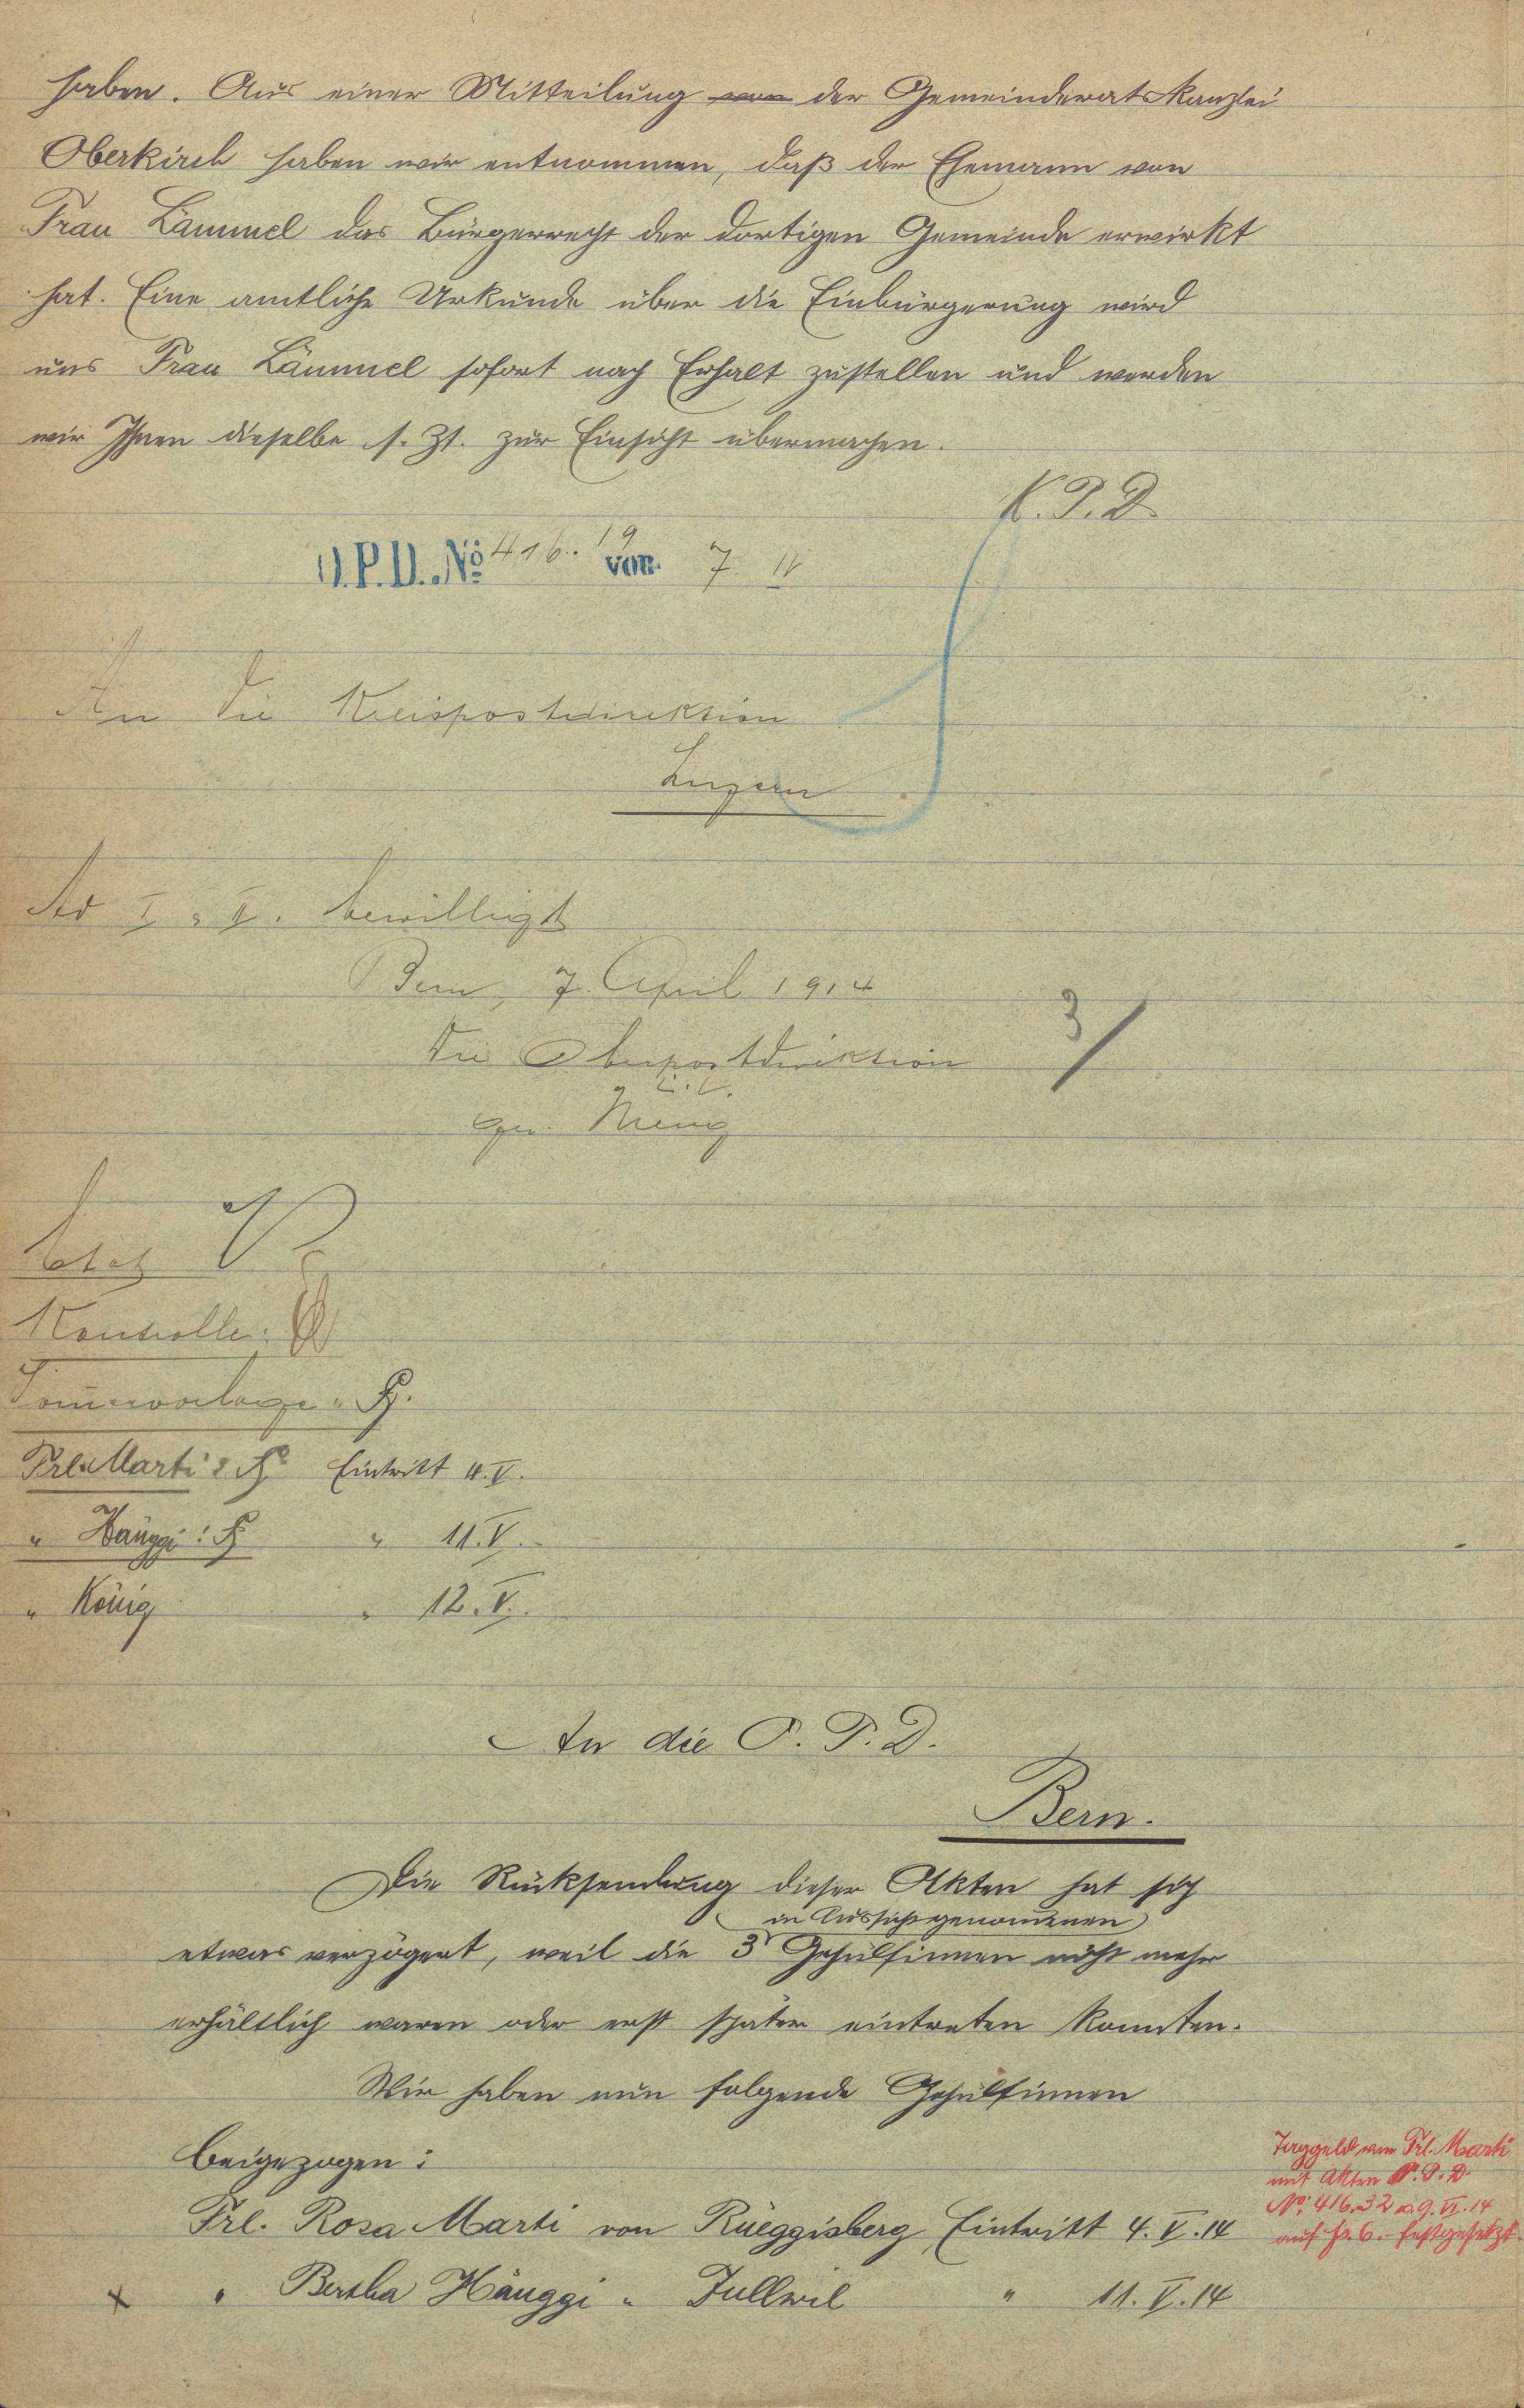 haben. Aus einer Mitteilung von der Gemeinderatskanzlei
Oberkirch haben wir entnommen, daß der Ehemann von
Frau Lämmel das Bürgerrecht der dortigen Gemeinde erwirkt
hat. Eine amtliche Urkunde über die Einbürgerung wird
uns Frau Lämmel sofort nach Erhalt zustellen und werden
wir Ihnen dieselbe s. Zt. zur Einsicht übermachen.
K.P.D.
O.P.D. No 416.19 von 7. IV
An die Kreispostdirektion
Luzern
Ad I & II. bewilligt
Bern, 7. April 1914
Die Oberpostdirektion
3/
gez.
Etat
Kontrolle:
Frl. Marti: Eintritt 4.V.
" Hänggi: " 11.V.
" König " 12.V.
An die O.P.D.
Bern.
Die Rücksendung dieser Akten hat sich
in Aussicht genommenen
etwas verzögert, weil die 3 Gehülfinnen nicht mehr
erhältlich waren oder erst später eintreten konnten.
Wir haben nun folgende Gehülfinnen
beigezogen:
Frl. Rosa Marti von Rüeggisberg, Eintritt 4.V.14
x " Bertha Hänggi " Zullwil " 11.V.14
Taggeld von Frl. Marti
mit Akten O.P.D.
No. 416.32 v. 9.VI.14
auf Fr. 6.- festgesetzt.